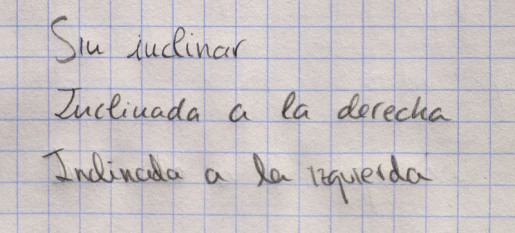 Sin inclinar
Inclinada a la derecha
Inclinada a la izquierda